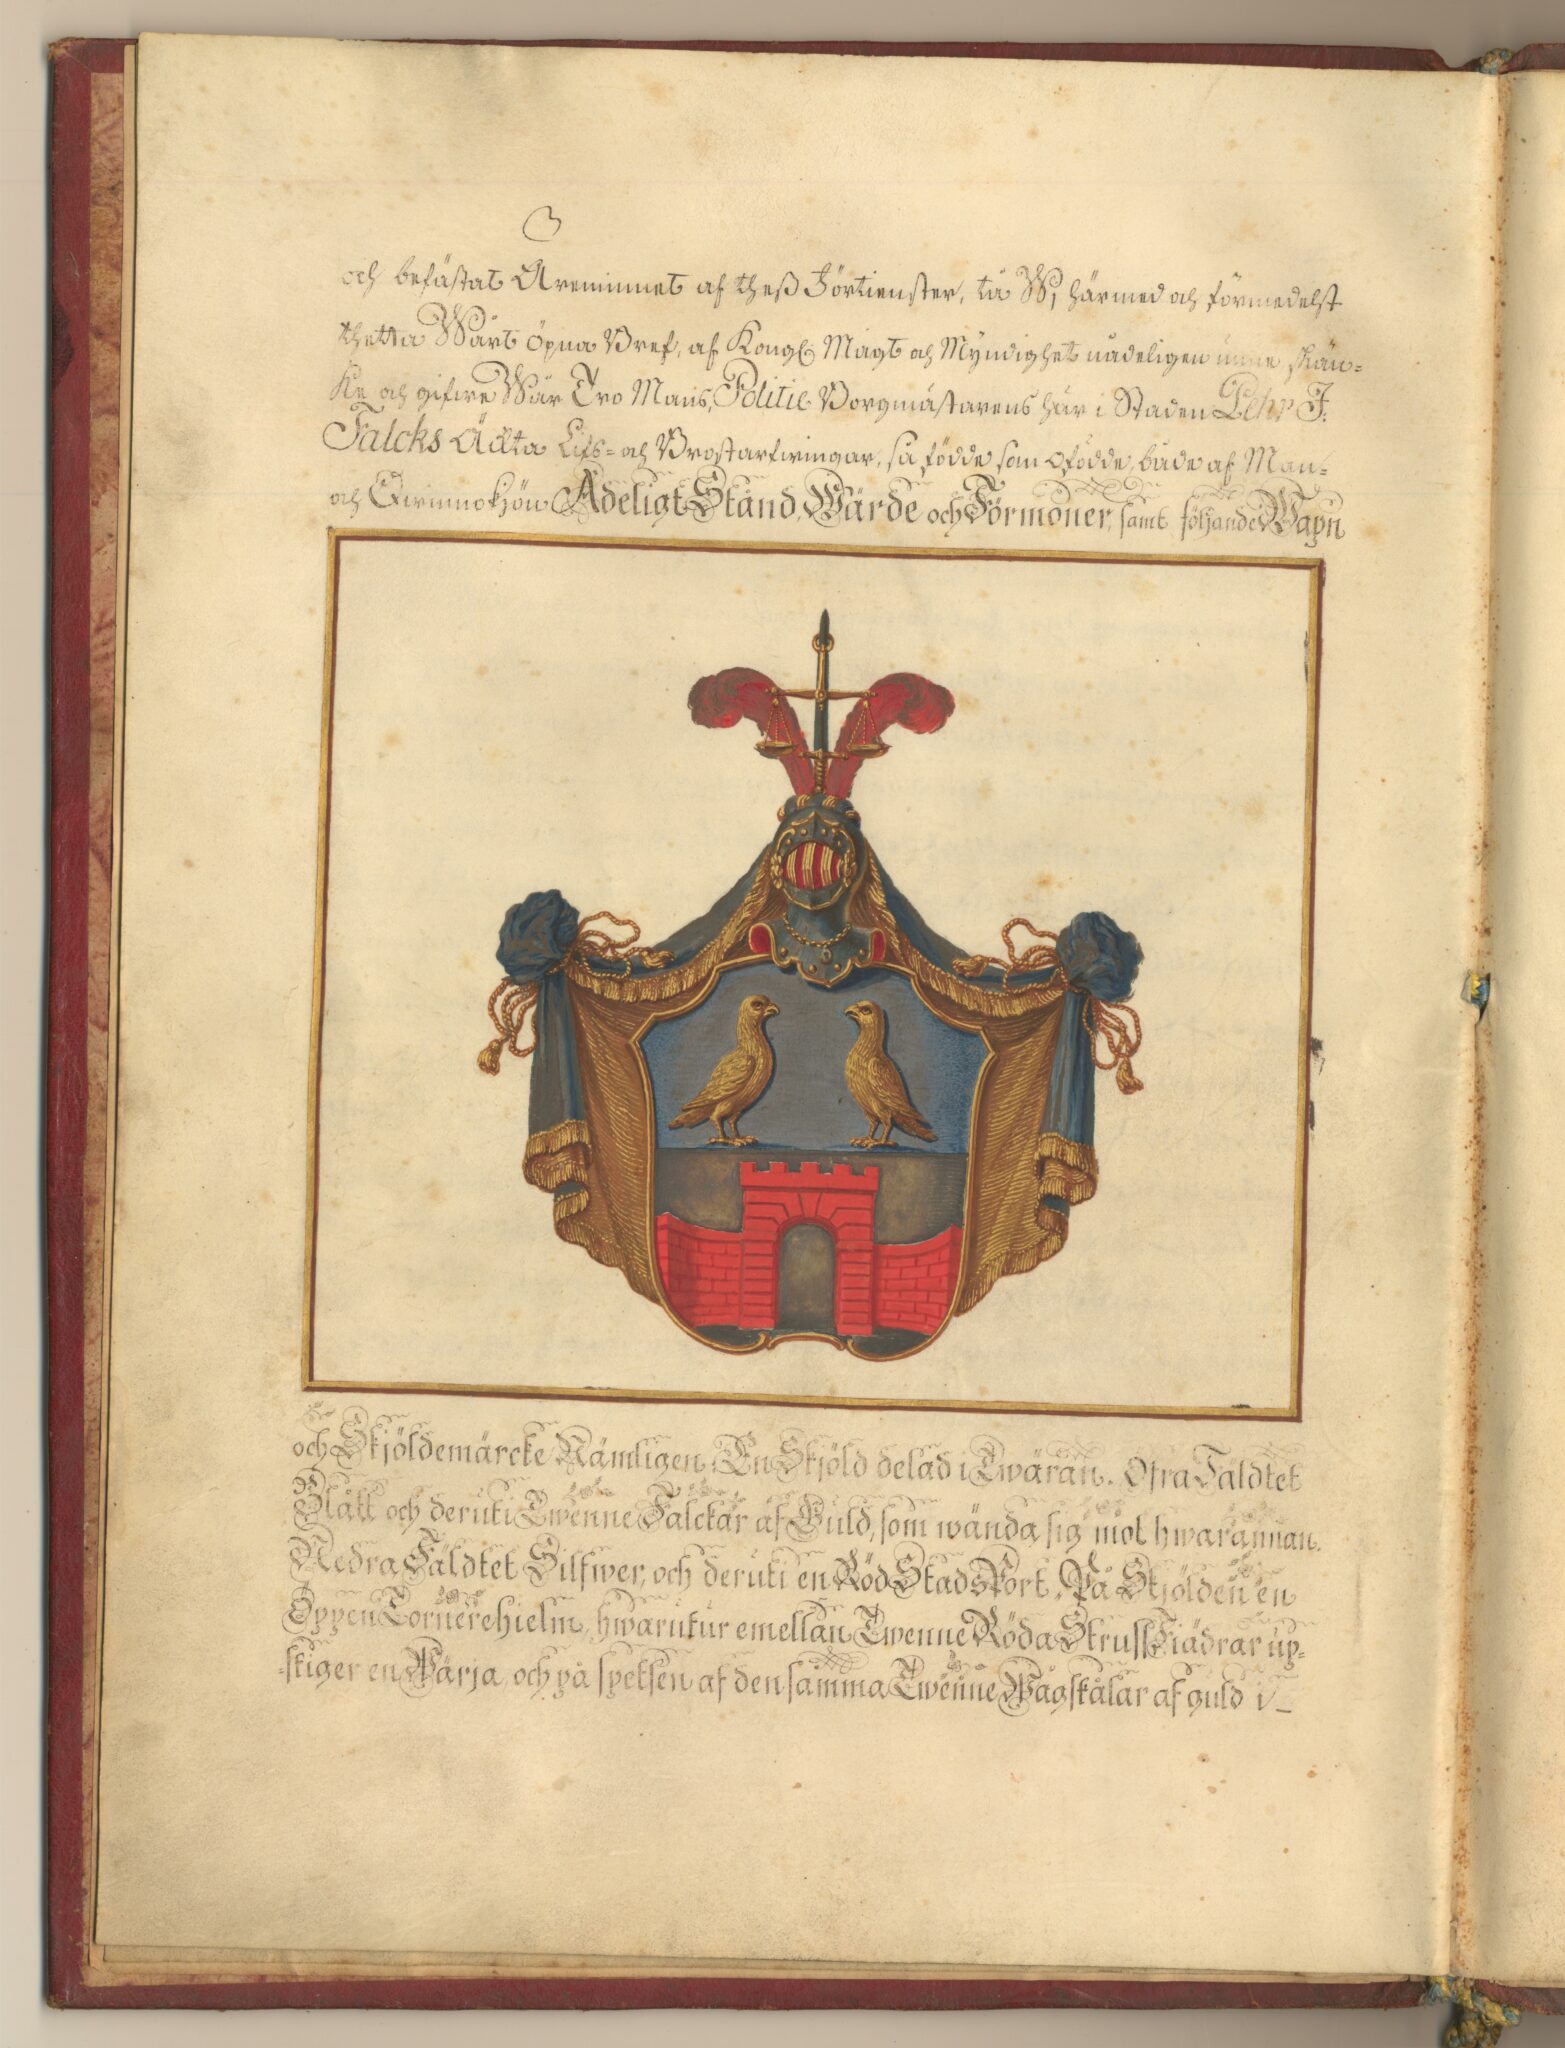 och befästat Äreminnet af theß Förtienster, tå Wi härmed och förmedelst
thetta Wårt öpna Bref, af Kongl Magt och Myndighet nådeligen unne skän=
ke och gifwe Wår Tro Mans, Politie Borgmästarens här i Staden Pehr J:
Falcks Äckta Lifs= och Bröstarfwingar, så födde som ofödde, både af Man=
och Qwinnokjön Adeligt Stånd, Wärde och Förmoner, samt följande Wapn
och Skjöldemärcke Nämligen: En Skjöld delad i Twäran. Öfra Fäldtet
Blått och deruti Twenne Falckar af Guld, som wända sig mot hwarannan.
Nedra Fäldtet Silfwer, och deruti en Röd Stads Port. På Skjölden en
Öppen Tornerehielm, hwarutur emellan Twenne Röda Struss Fiädrar up=
=stiger en Wärja, och på spetsen af den samma Twenne Wågskålar af guld i